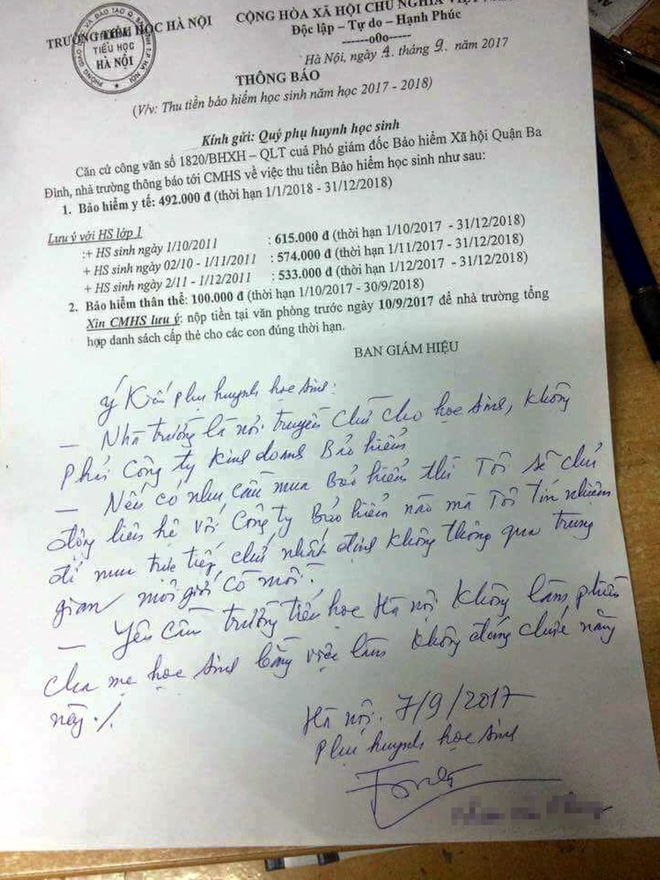 TRƯỜNG TIỂU HỌC HÀ NỘI
CỘNG HÒA XÃ HỘI CHỦ NGHĨA VIỆT
Độc lập – Tự do – Hạnh Phúc
-----o0o-----
TIỂU HỌC
HÀ NỘI
Hà Nội, ngày 4. tháng 9. năm 2017
THÔNG BÁO
(V/v: Thu tiền bảo hiểm học sinh năm học 2017 - 2018)
Kính gửi: Quý phụ huynh học sinh
Căn cứ công văn số 1820/BHXH – QLT cuả Phó giám đốc Bảo hiểm Xã hội Quận Ba
Đình, nhà trường thông báo tới CMHS về việc thu tiền Bảo hiểm học sinh như sau:
1. Bảo hiểm y tế: 492.000 đ (thời hạn 1/1/2018 - 31/12/2018)
Lưu ý với HS lớp 1
:+ HS sinh ngày 1/10/2011 : 615.000 đ (thời hạn 1/10/2017 - 31/12/2018)
+ HS sinh ngày 02/10 - 1/11/2011 : 574.000 đ (thời hạn 1/11/2017 - 31/12/2018)
+ HS sinh ngày 2/11 - 1/12/2011 : 533.000 đ (thời hạn 1/12/2017 - 31/12/2018)
2. Bảo hiểm thân thể: 100.000 đ (thời hạn 1/10/2017 - 30/9/2018)
Xin CMHS lưu ý: nộp tiền tại văn phòng trước ngày 10/9/2017 để nhà trường tổng
hợp danh sách cấp thẻ cho các con đúng thời hạn.
BAN GIÁM HIỆU
ý Kiến phụ huynh học sinh:
– Nhà trường là nơi truyền chữ cho học sinh, không
phải Công ty Kinh doanh Bảo hiểm
– Nếu có nhu cầu mua Bảo hiểm thì Tôi sẽ chủ
động liên hệ với Công ty Bảo hiểm nào mà Tôi tín nhiệm
để mua trực tiếp, chứ nhất định không thông qua trung
gian môi giới cò mồi.
– Yêu cầu trường tiểu học Hà nội không làm phiền
cha mẹ học sinh bằng việc làm không đúng chức năng
này ./.
Hà nội. 7/9/2017
Phụ huynh học sinh